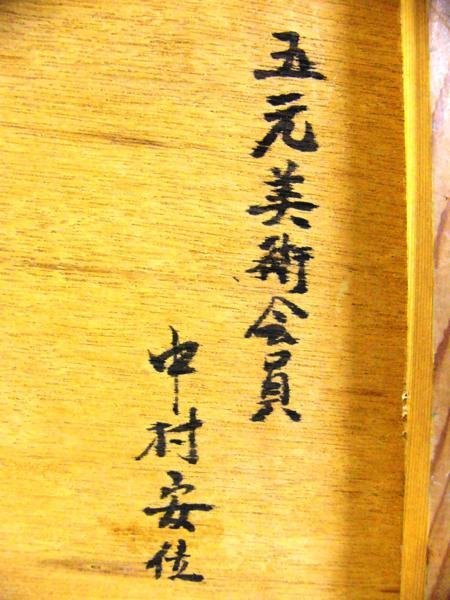 五元美術会員
中村安位